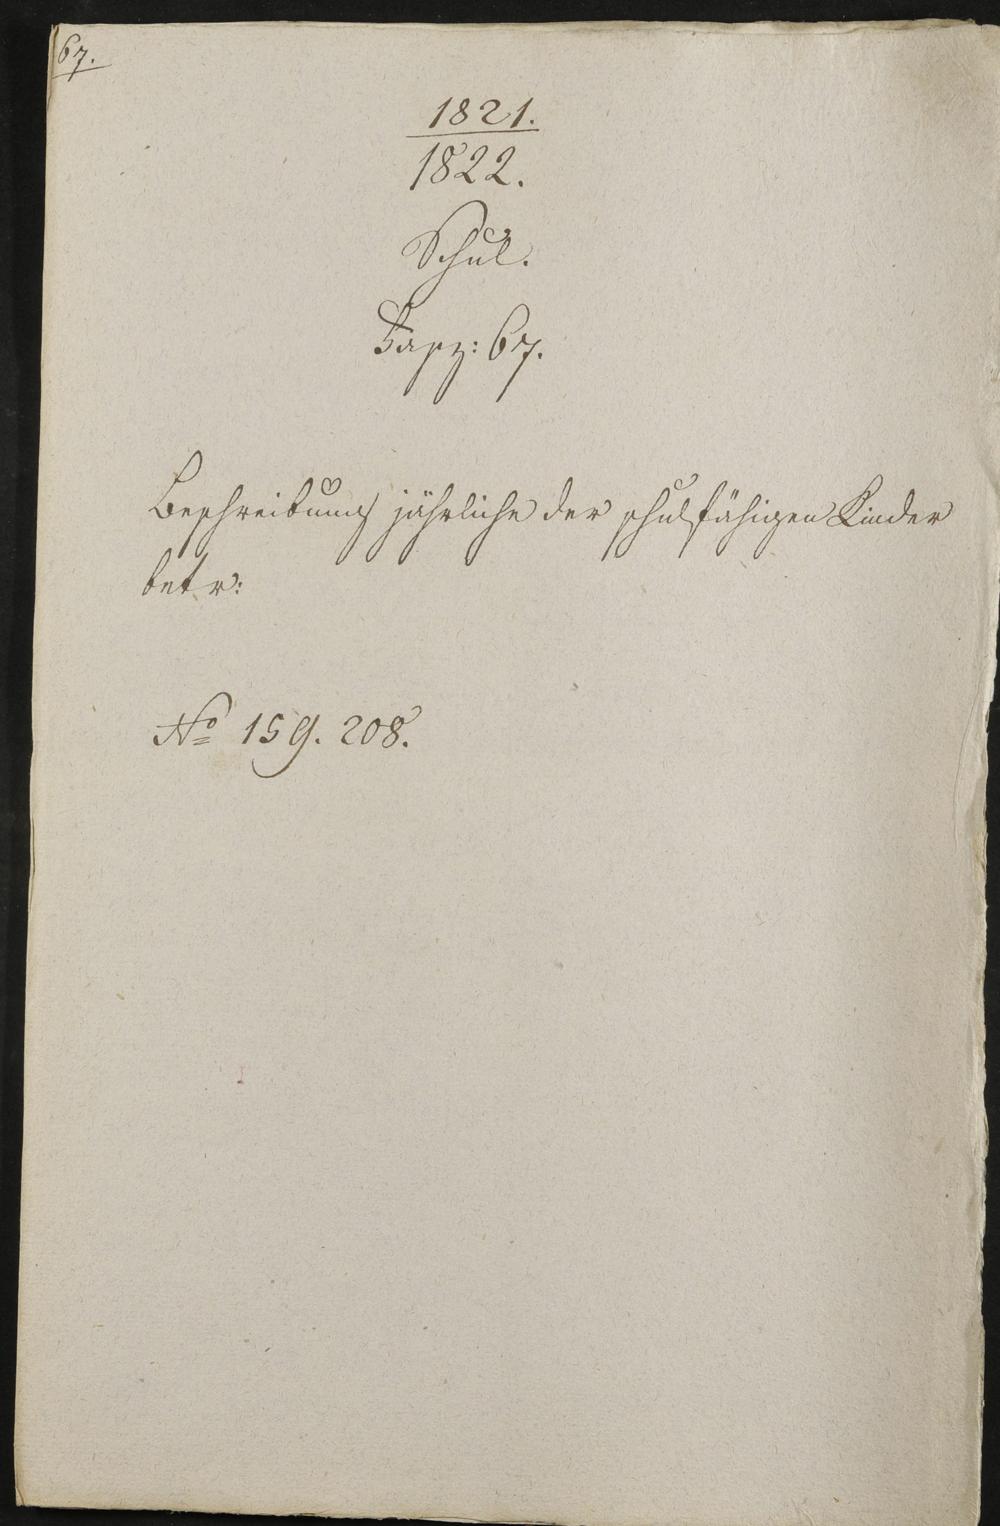 67.
1821.
1822.
Schul.
Fasz: 67.
Beschreibung jährliche der schulfähigen Kinder
betr:
No 159. 208.